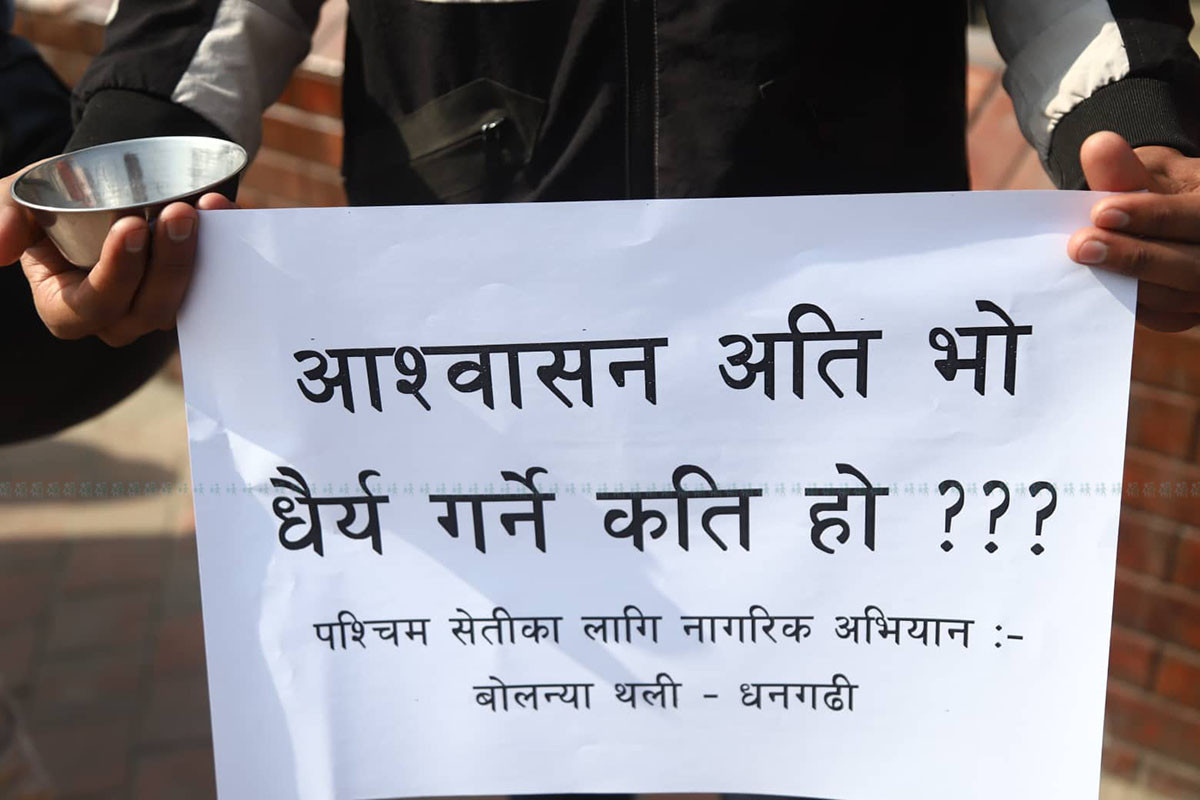 आश्वासन अति भो
धैर्य गर्ने कति हो ???
पश्चिम सेतीका लागि नागरिक अभियान :-
बोलन्या थली - धनगढी